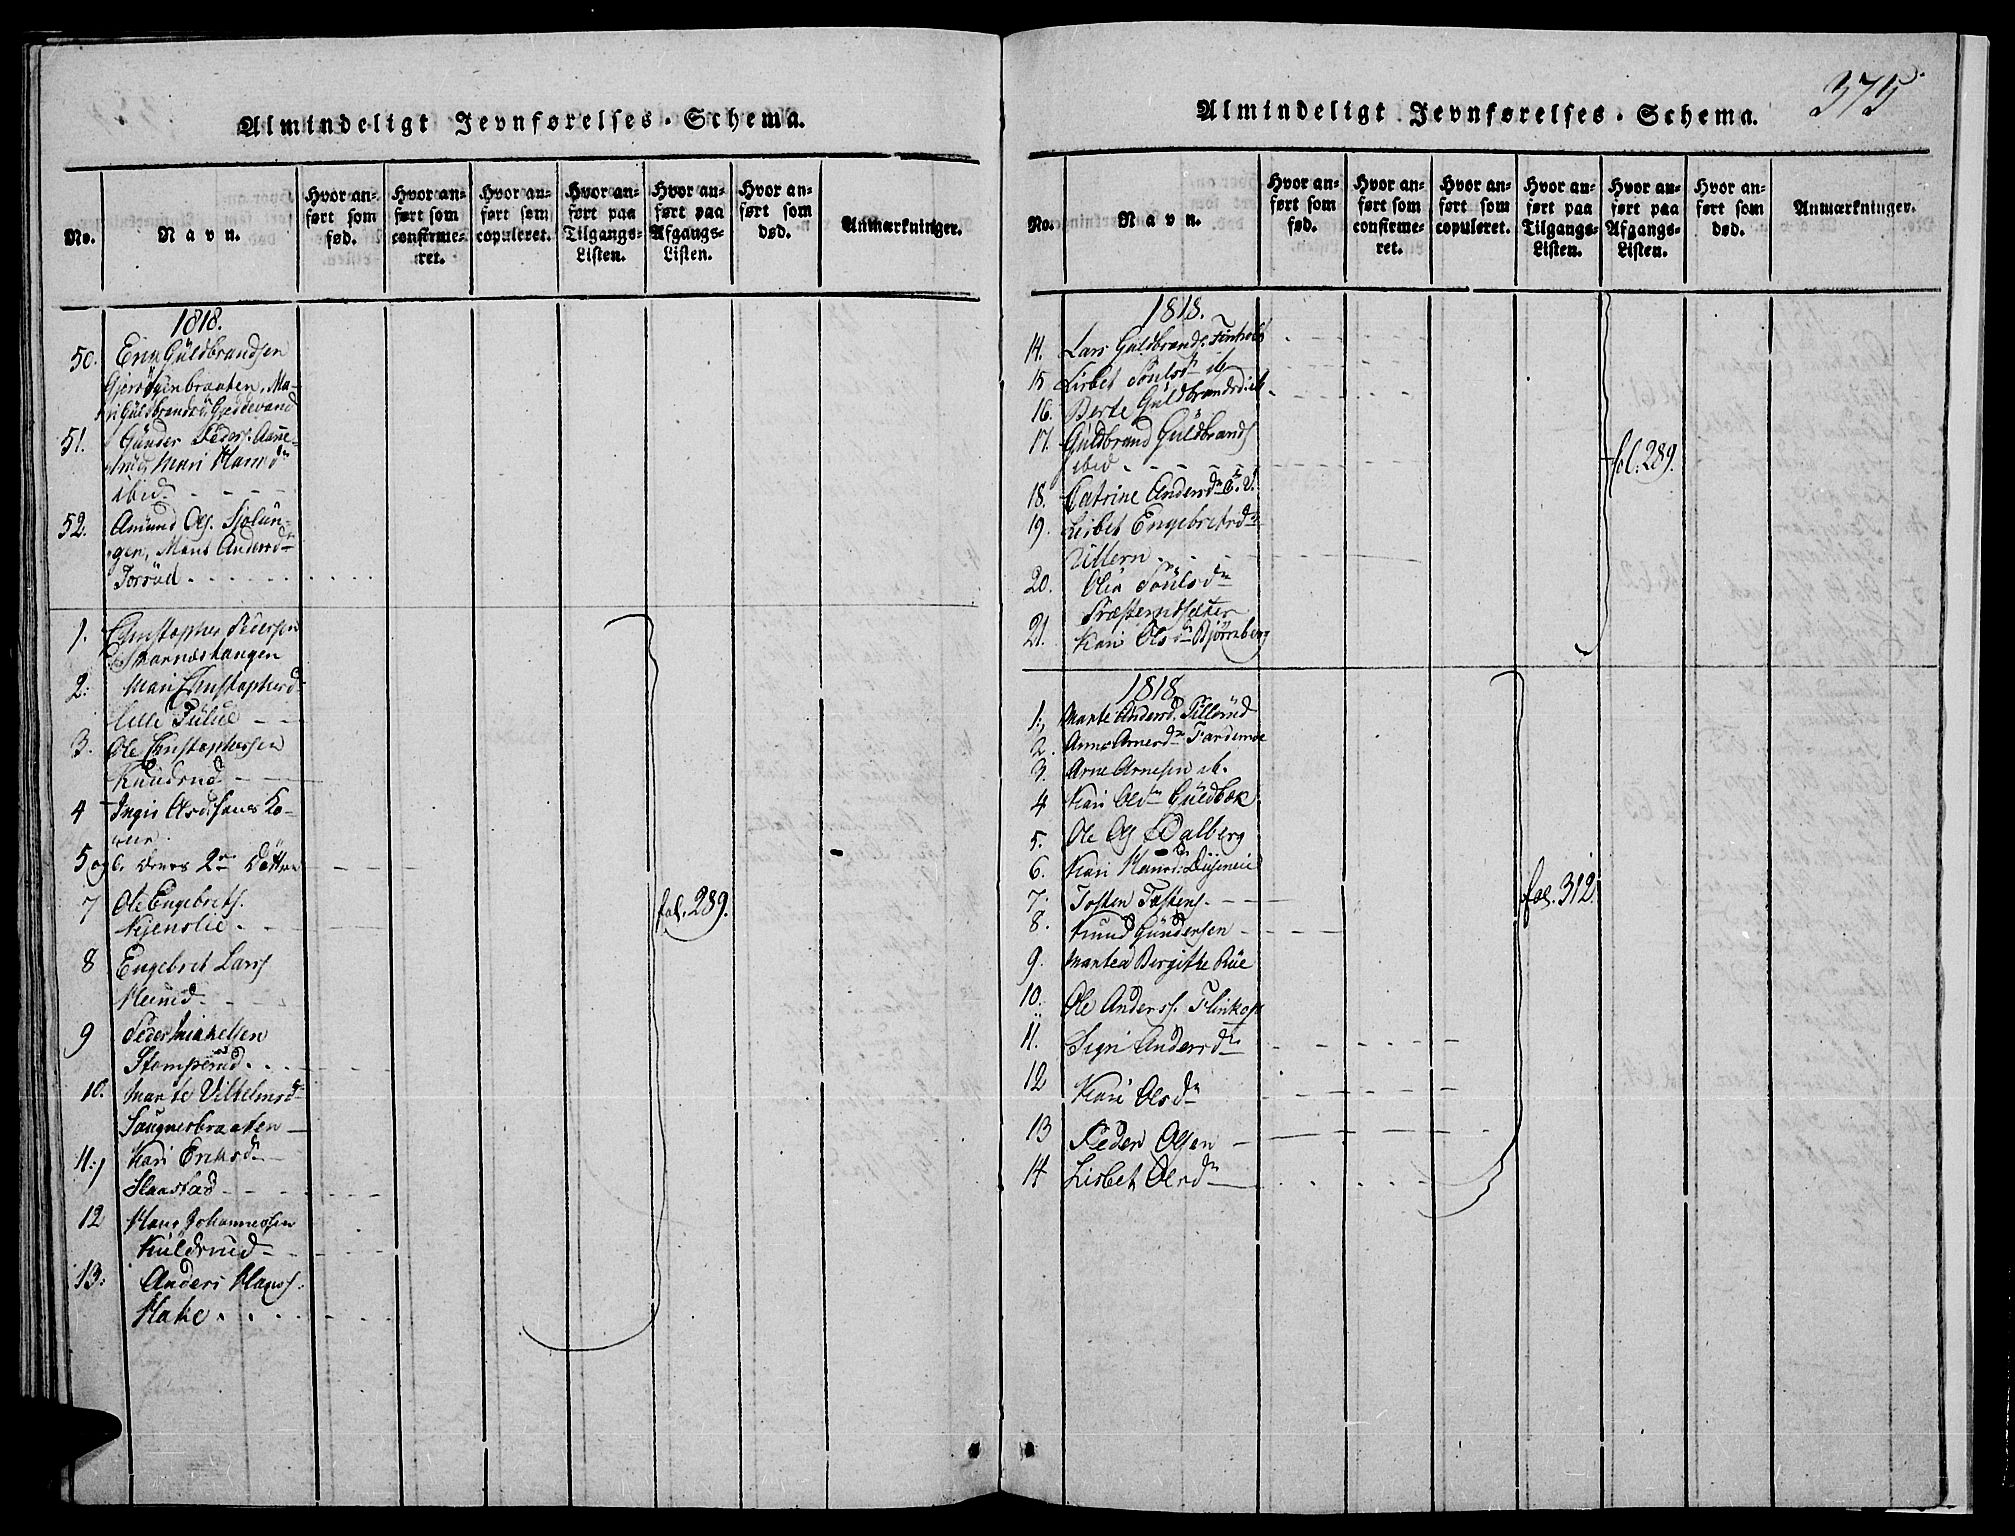 Almindeligt Jevnførelses-Schema.
No.
Navn.
Hvor an-
ført som
fød.
Hvor an-
ført som
confirme-
ret.
Hvor an-
ført som
copuleret.
Hvor an-
ført paa
Tilgangs-
Listen.
Hvor an-
ført paa
Afgangs-
Listen.
Hvor an-
ført som
død.
Anmærkninger.
1818.
50. Guldbrandsen
braaten, Ma-
ri Guldbrandsd
51. Gunder Peders.
Mari Hansdn
ibid.
52. Amund Ols.
gen, Andersdn
Torrud
1. Christopher Pedersen
Skarnæshangen
2: Mari Christophersd
Lille
3. Ole Christophersen
Knudsrud
4 Ko-
5 og 6. Dens 2de Døttre
7 Ole Engebrets.
Kjenslie
8 Engebret Lars.
9 Peder Mikelsen
Stomperud
10. Marte Vilhelmsd
Sougnesbraaten
11: Kari Eriksdn
Haastad
12 Hans Johannessen
Kuldsrud
13: Anders Hans.
Hake
fol. 289.
Almindeligt Jevnførelses-Schema.
375
No.
Navn.
Hvor an-
ført som
fød.
Hvor an-
ført som
confirme-
ret.
Hvor an-
ført som
copuleret.
Hvor an-
ført paa
Tilgangs-
Listen.
Hvor an-
ført paa
Afgangs-
Listen.
Hvor an-
ført som
død.
Anmærkninger.
1818.
14. Lars Guldbrands.
15 Lisbet Poulsdn ib
16. Berte Guldbrandsd ib
17. Guldbrand Guldbrands
ibid
fol. 289.
18. Catrine Andersdn
19. Lisbet Engebretsdn
Ullern
20. Olia Poulsdn
Præsterudsæter
21. Kari Olsdn Bjørnberg
1818.
1. Marte Andersd. Tillerud
2. Anne Arnesdn
3. Arne Arnesen ib.
4 Kari Olsdn Guldbæk
5. Ole Ols Dalberg
6. Kari Hansd.
7. Tosten Tostens.
fol. 312.
8. Knud Gundersen
9. Martea Birgithe Rue
10. Ole Anders.
11. Sigri Andersdn
12 Kari Olsdn
13 Peder Olsen
14 Lisbet Olsdn